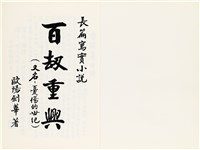 長篇寫實小說
百劫重興
（又名·憂傷的世紀）
歐陽劍華著